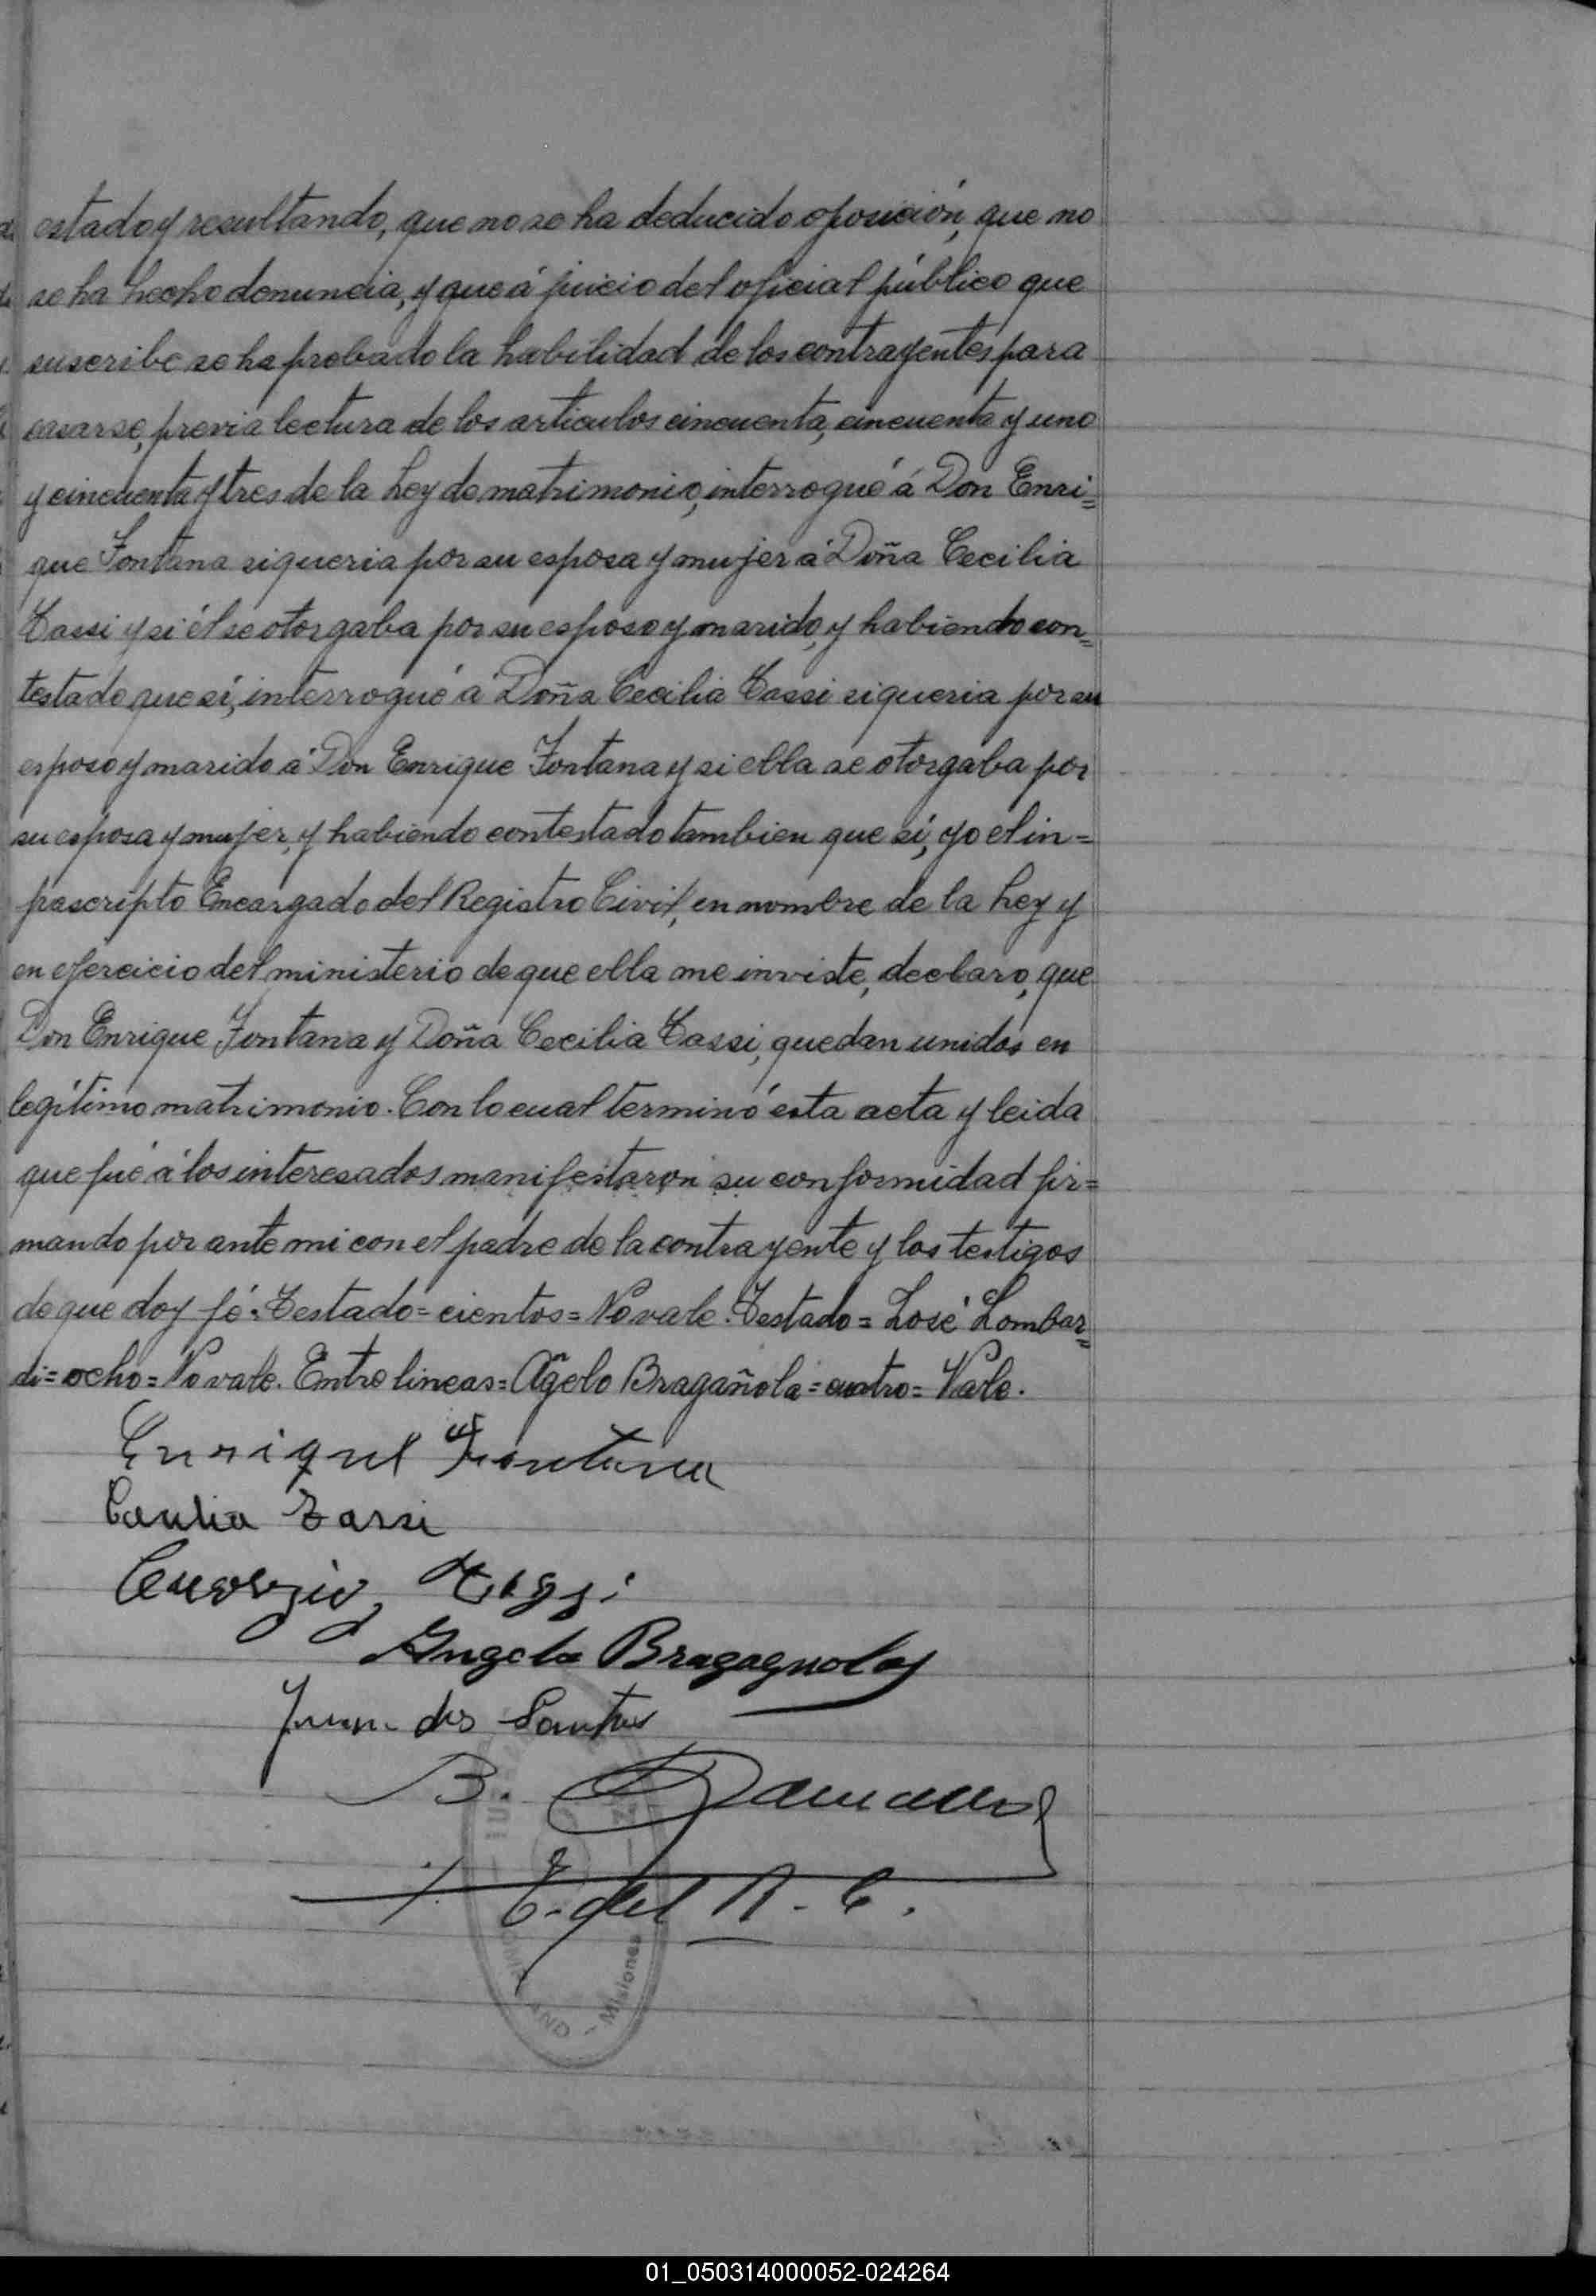 estado y resultando, que no se ha deducido oposición, que no
se ha hecho denuncia, y que á juicio del oficial público que
suscribe se ha probado la habilidad de los contrayentes para
casarse, previa lectura de los articulos cincuenta, cincuenta y uno
y cincuenta y tres de la Ley de matrimonio, interrogué á Don Enri=
que Fontana si queria por su esposa y mujer á Doña Cecilia
Tassi y si él se otorgaba por su esposo y marido, y habiendo con=
testado que sí, interrogué á Doña Cecilia Tassi si queria por su
esposo y marido á Don Enrique Fontana y si ella se otorgaba por
su esposa y mujer, y habiendo contestado tambien que sí, yo el in=
frascripto Encargado del Registro Civil, en nombre de la Ley y
en ejercicio del ministerio de que ella me inviste, declaro, que
Don Enrique Fontana y Doña Cecilia Tassi, quedan unidos en
legítimo matrimonio. Con lo cual terminó esta acta y leida
que fué á los interesados manifestaron su conformidad fir=
mando por ante mi con el padre de la contrayente y los testigos
de que doy fé. Testado = cientos = No vale. Testado = José Lombar=
di = ocho = No vale. Entre lineas = Añgelo Bragañola = cuatro = Vale.
Enrique Fontana
Cecilia Tassi
Tassi
Angelo Bragagnolo
Juan dos Santos
B.
E. del R. C.
Misiones
01_050314000052-024264